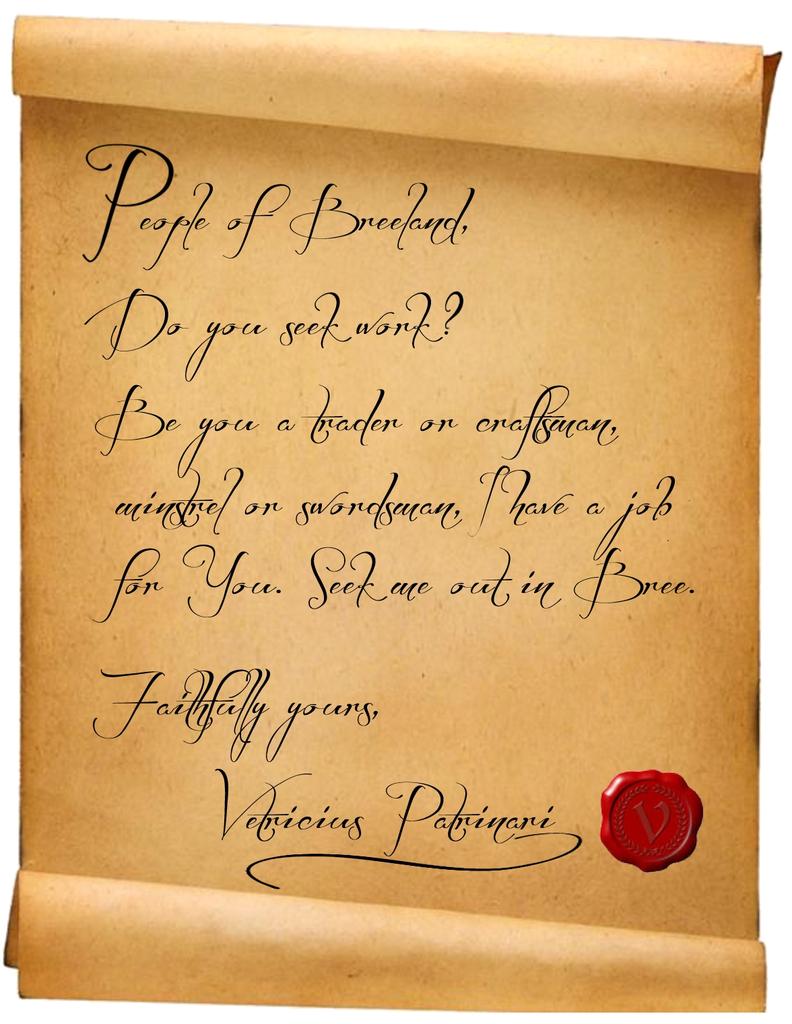 People of Breeland,
Do you seek work?
Be you a trader or craftsman,
minstrel or swordsman, I have a job
for You. Seek me out in Bree.
Faithfully yours,
Vetricius Patrinari
V